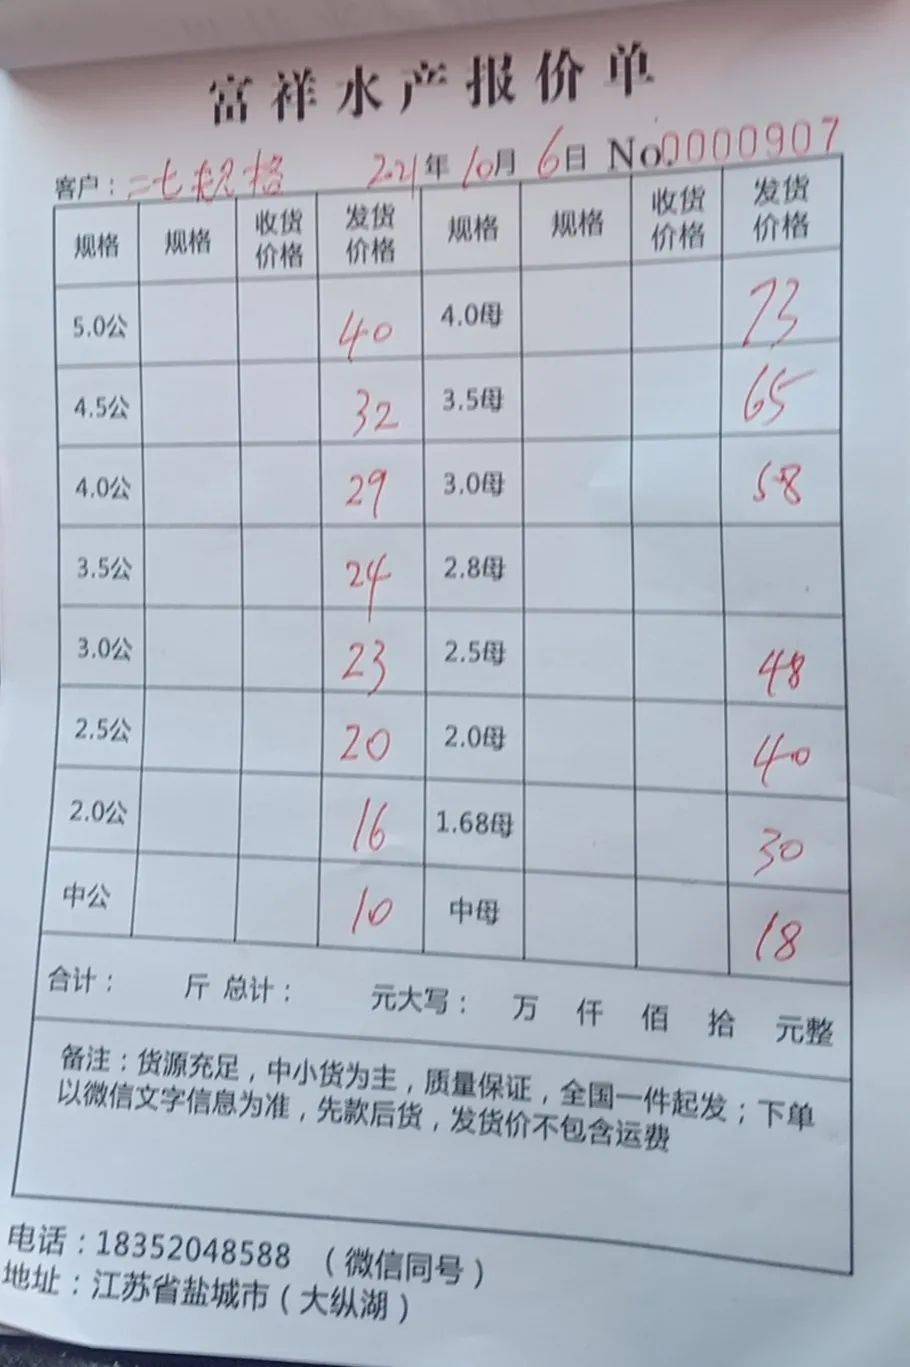 富祥水产报价单
客户：二七规格 2021年10月6日 No.0000907
规格 规格 收货价格 发货价格 规格 规格 收货价格 发货价格
5.0公 40 4.0母 73
4.5公 32 3.5母 65
4.0公 29 3.0母 58
3.5公 24 2.8母
3.0公 23 2.5母 48
2.5公 20 2.0母 40
2.0公 16 1.68母 30
中公 10 中母 18
合计： 斤 总计： 元大写： 万 仟 佰 拾 元整
备注：货源充足，中小货为主，质量保证，全国一件起发；下单
以微信文字信息为准，先款后货，发货价不包含运费
电话：18352048588 （微信同号）
地址：江苏省盐城市（大纵湖）